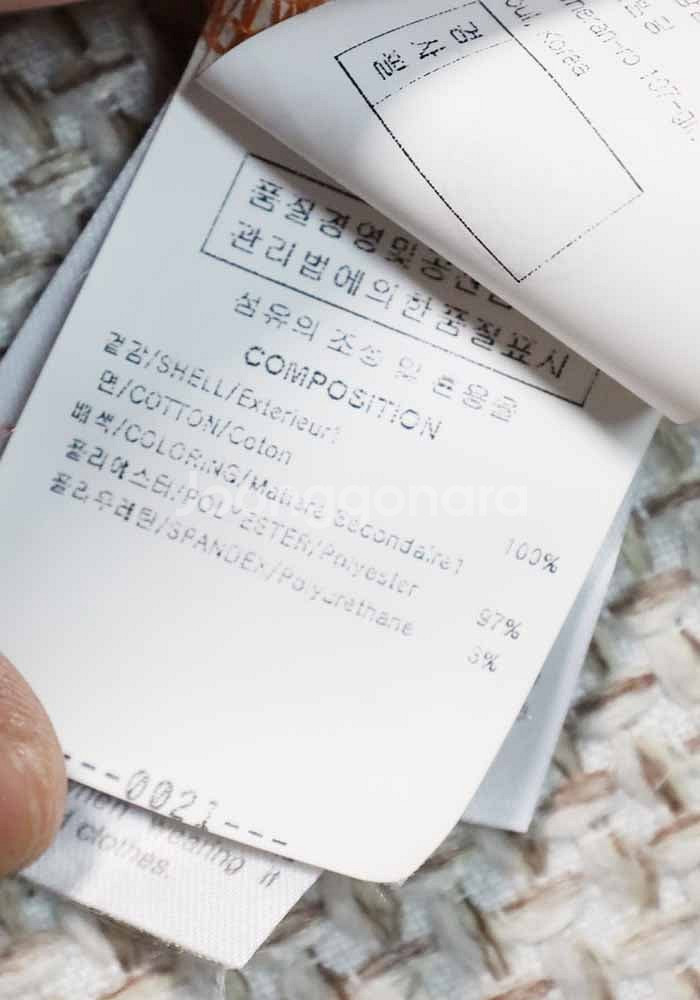 검사필
heran-ro 107-gil,
oul, Korea
품질경영및공산품
관리법에의한품질표시
섬유의 조성 및 혼용율
COMPOSITION
겉감/SHELL/Exterieur1
면/COTTON/Coton 100%
배색/COLORING/Matiere Secondaire1
폴리에스터/POLYESTER/Polyester 97%
폴리우레탄/SPANDEX/Polyurethane 3%
---0021---
wearing it
clothes.
Joonggonara